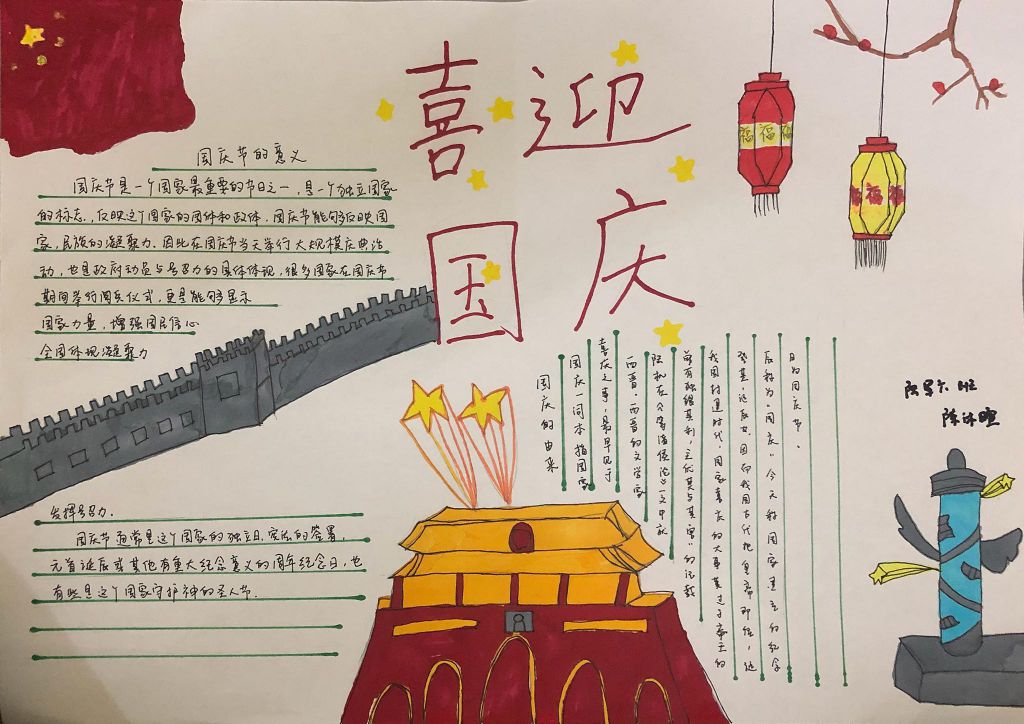 喜迎
国庆
国庆节的意义
国庆节是一个国家最重要的节日之一，是一个独立国家
的标志，反映这个国家的国体和政体，国庆节能够反映国
家，民族的凝聚力，因此在国庆节当天举行大规模庆典活
动，也是政府动员与号召力的具体体现，很多国家在国庆节
期间举行阅兵仪式，更是能够显示
国家力量，增强国民信心
全国体现凝聚力
发挥号召力.
国庆节通常是这个国家的独立日，宪法的签署，
元首诞辰或其他有重大纪念意义的周年纪念日，也
有些是这个国家守护神的圣人节.
国庆的由来
国庆一词本指国家
喜庆之事，最早见于
西晋.西晋的文学家
陆机在《诸侯论》一文中就
曾有独飨其利，主忧莫与其害"的记载
我国封建时代国家喜庆的大事莫过于帝王的
登基，诞辰 因而我国古代把皇帝即位，诞
辰称为"国庆"今天称国家建立的纪念
日为国庆节.
福 福 福
福 福